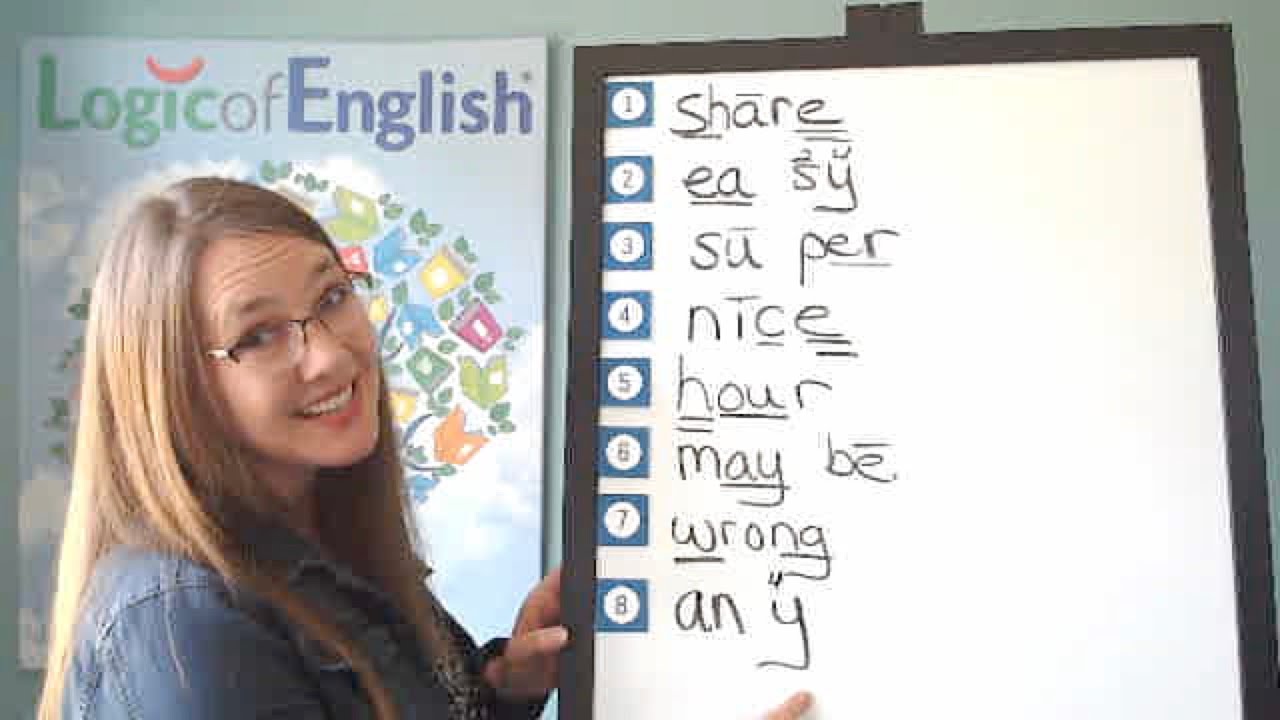 Logic of English®
1 shāre
2 ea s²y⁴
3 sū per
4 nīce
5 hour
6 may bē
7 wrong
8 an ÿ